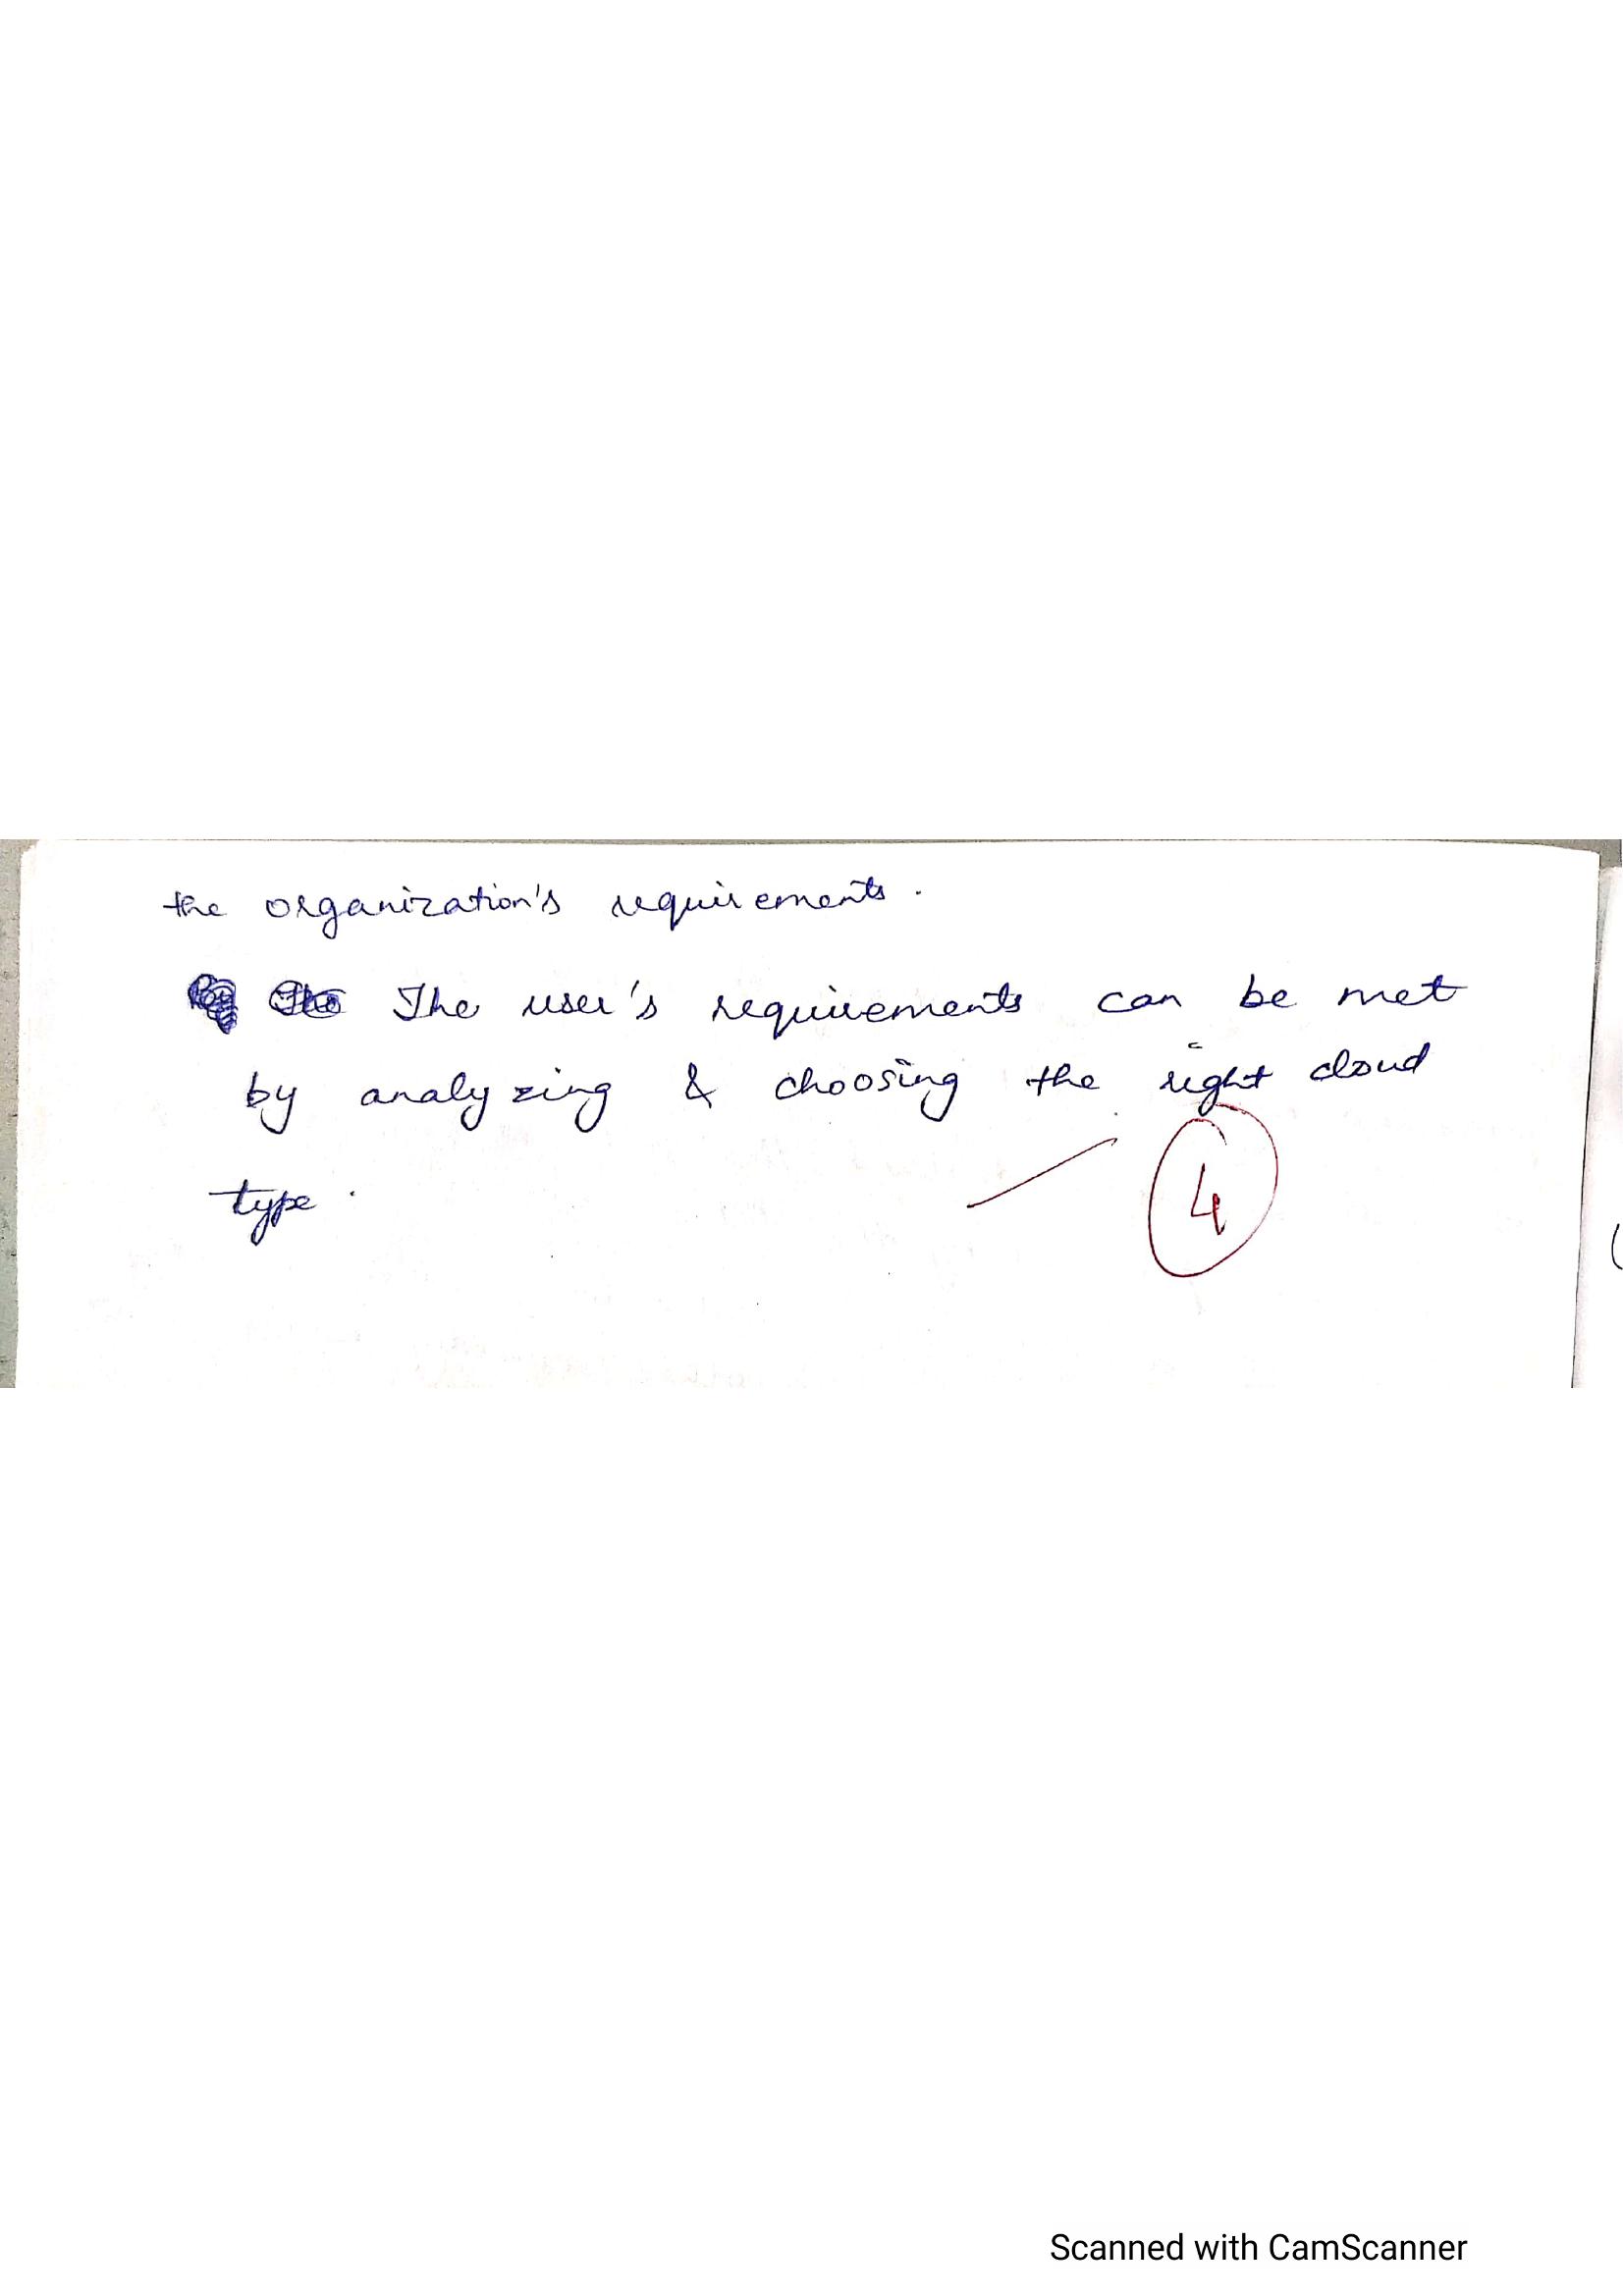 the organization's requirements.
The user's requirements can be met
by analyzing & choosing the right cloud
type.
4
Scanned with CamScanner